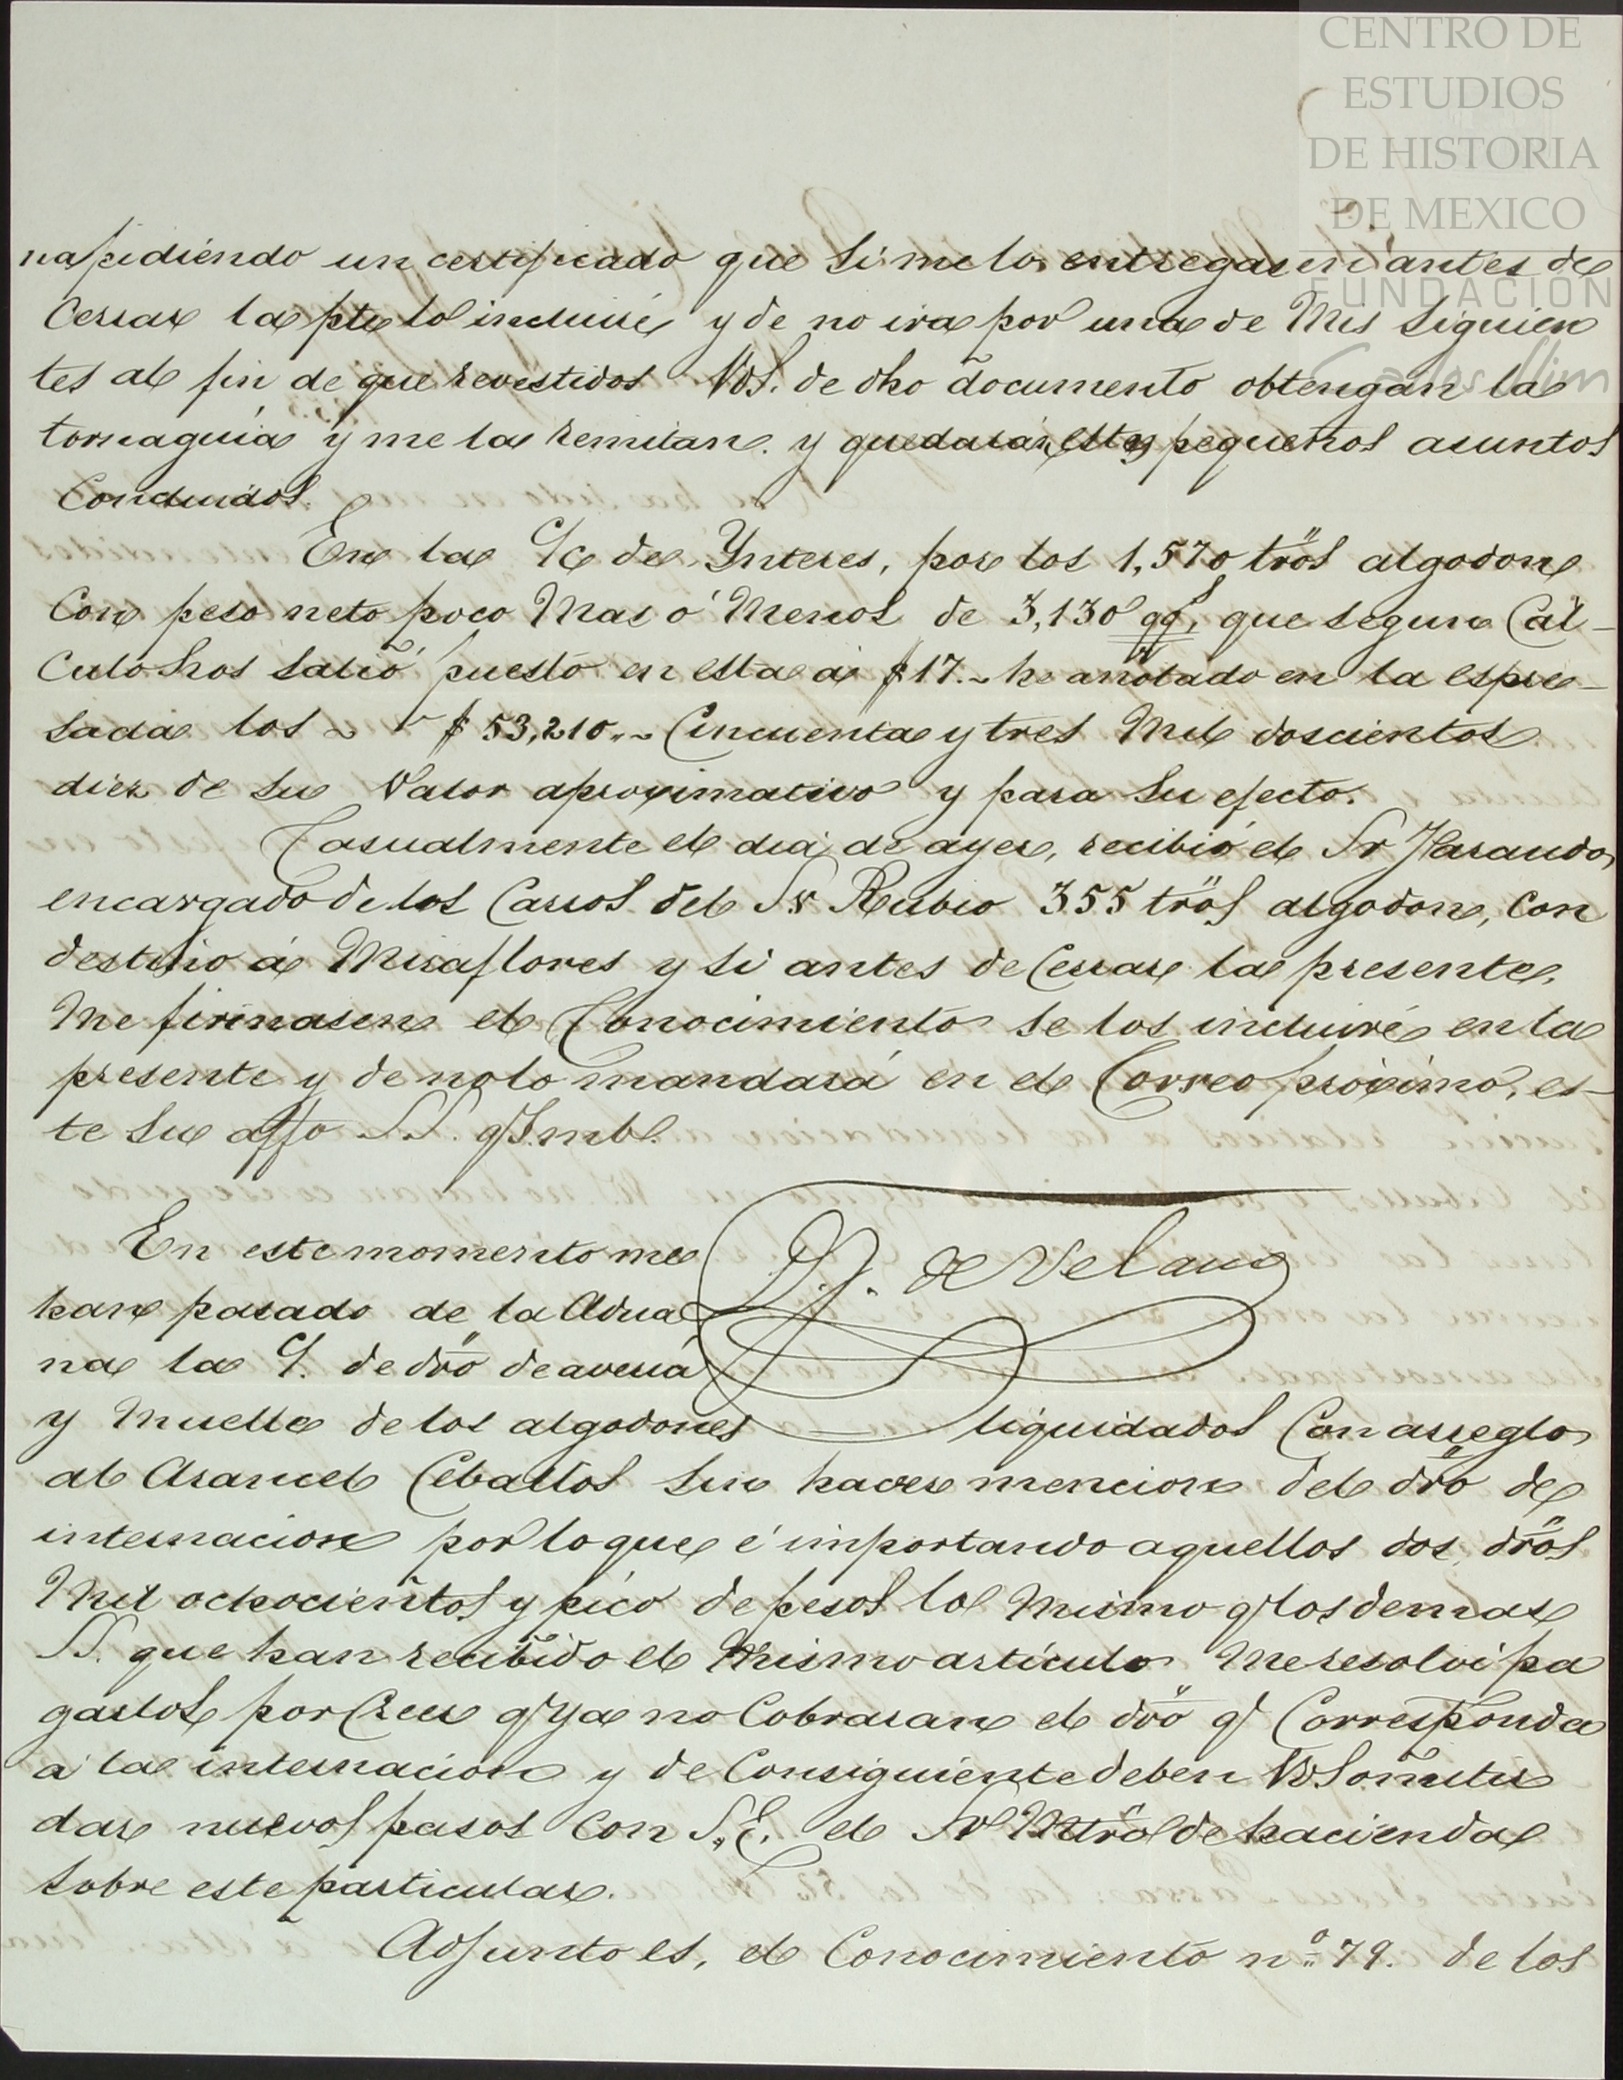 CENTRO DE
ESTUDIOS
DE HISTORIA
DE MEXICO
FUNDACIÓN
Carlos Slim
na pidiendo un certificado que si me lo entregasen antes de
Cerrar la pte lo incluiré y de no ira por una de Mis Siguien
tes al fin de que revestidos Vds. de dho documento obtengan la
tornaguia y me la remitan. y quedarán estos pequeños asuntos
Concluidos.
En la C/C de Ynteres, por los 1,570 trõs algodon
Con peso neto poco Mas ó Menos de 3,130 qq.s que segun Cál-
culos hos salió puesto en esta a $17.~ he anotado en la espre-
sada los ~ $53,210..~ Cincuenta y tres Mil doscientos
diez de su Valor aproximativo y para Su efecto.
Casualmente el dia de ayer, recibió el Sr Harando
encargado de los Carros del Sr Rubio 355 trõs algodon, Con
destino á Miraflores y si antes de Cerrar la presente,
Me firmasen el Conocimiento se los incluiré en la
presente y de no lo mandará en el Correo próximo, es-
te Su affo S.S. q S.mb.
D.J. de Velasco
En este momento me
han pasado de la Adua
na la C/. de drõ de averiá
y Muelle de los algodones liquidados Con arreglo
al Arancel Ceballos Sin hacer mencion del drõ de
internacion por lo que é importando aquellos dos drõs
Mil ochocientos y pico de pesos lo Mismo q los demas
SS. que han recibido el Mismo artículo Me resolví pa
garlos por Creer q ya no Cobraran el drõ q Corresponda
a la internacion y de Consiguiente deben Vds omitir
dar nuevos pasos Con S.E. el Sr Mtrõ de hacienda
Sobre este particular.
Adjunto es, el Conocimiento nº 79. de los